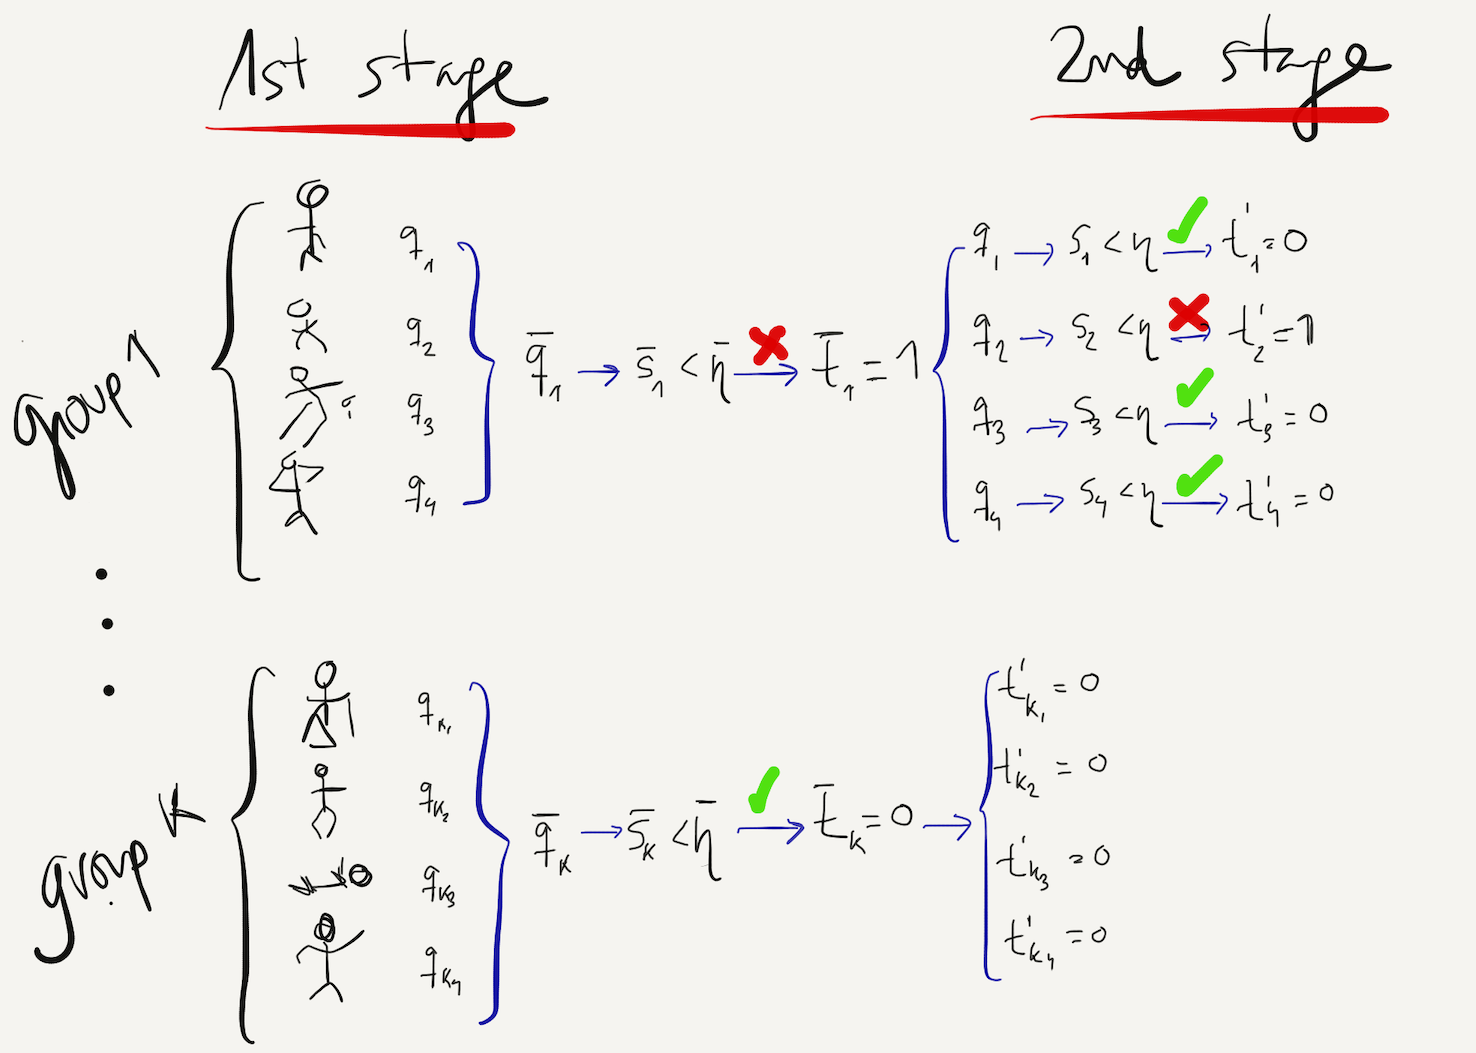 1st stage 2nd stage
group 1
q₁
q₂
q₃
q₄
q̄₁ → s̄₁ < η̄ → t̄₁ = 1
q₁ → s₁ < η → t'₁ = 0
q₂ → s₂ < η → t'₂ = 1
q₃ → s₃ < η → t'₃ = 0
q₄ → s₄ < η → t'₄ = 0
group K
q_K₁
q_K₂
q_K₃
q_K₄
q̄_K → s̄_K < η̄ → t̄_K = 0 →
t'_K₁ = 0
t'_K₂ = 0
t'_K₃ = 0
t'_K₄ = 0